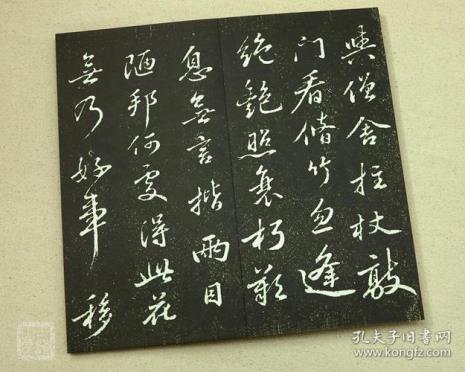 與僧舍拄杖敲
門看脩竹忽逢
絕艷照衰朽歎
息無言揩兩目
陋邦何處得此花
無乃好事移
孔夫子旧书网
www.kongfz.com